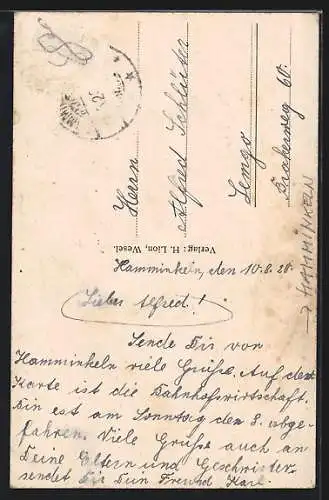 Herrn
Alfred Schlüter
Lemgo
Brakerweg 60.
→ HAMMINKELN
Verlag: H. Lion, Wesel.
Hamminkeln, den 10.8.20.
Lieber Alfred!
Sende Dir von
Hamminkeln viele Grüße. Auf der
Karte ist die Bahnhofswirtschaft.
Bin est am Sonntag den 8. abge-
fahren. Viele Grüße auch an
Deine Eltern und Geschwister
sendet Dir Dein Freund Karl.